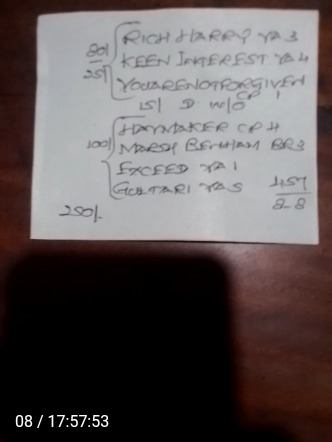 80/ RICH HARRY YA 3
25/ KEEN INTEREST YA 4
YOUARENOTFORGIVEN CP 1
15/ D W/O
HAYMAKER CP 4
100/ MARSH BENHAM BR 3
EXCEED YA 1
YA 5 457
250/- 8-8
08 / 17:57:53